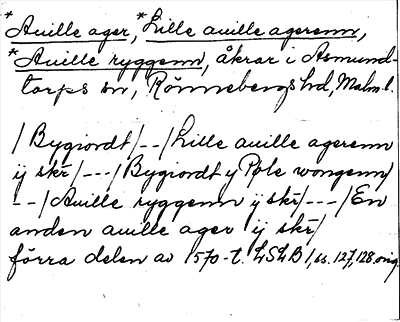 *Auille ager, *Lille auille agerenn,
*Auille ryggenn, åkrar i Asmund-
torps sn, Rönnebergs hd, Malm.l.
/Bygiordt/--/Lille auille agerenn
ij skr/---/Bygiordt y Pøle wongenn/
--/Auille ryggenn ij skr/---/En
anden auille ager ij skr/
förra delen av 1570-t. LSLB 1, ss. 127, 128 orig.